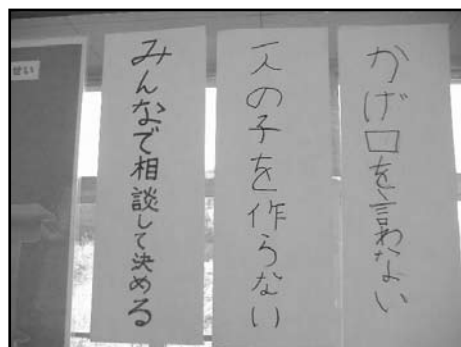 かげ口を言わない
一人の子を作らない
みんなで相談して決める
せい